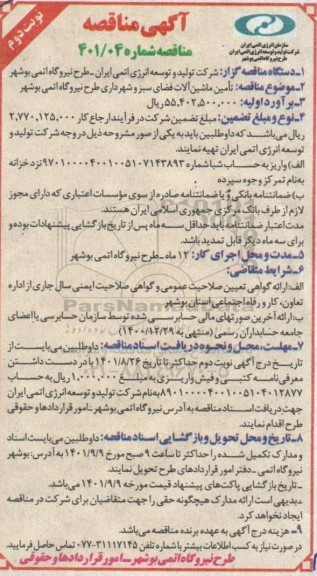 نوبت دوم
آگهی مناقصه
مناقصه شماره ۴۰۱/۰۴
سازمان انرژی اتمی ایران
شرکت تولید و توسعه انرژی اتمی ایران
طرح نیروگاه اتمی بوشهر
۱-دستگاه مناقصه گزار: شرکت تولید و توسعه انرژی اتمی ایران -طرح نیروگاه اتمی بوشهر
۲-موضوع مناقصه: تأمین ماشین آلات فضای سبز و شهرداری طرح نیروگاه اتمی بوشهر
۳-برآورد اولیه: ۵۵,۴۰۲,۵۰۰,۰۰۰ریال
۴-نوع و مبلغ تضمین: مبلغ تضمین شرکت در فرآیند ارجاع کار ۲,۷۷۰,۱۲۵,۰۰۰
ریال می‌باشد که داوطلبین باید به یکی از صور مشروحه ذیل در وجه شرکت تولید و
توسعه انرژی اتمی ایران تهیه نمایند.
الف) واریز به حساب شبا شماره ۹۷۰۱۰۰۰۰۴۰۰۱۰۰۵۱۰۷۱۴۳۸۹۳ نزد خزانه
به نام تمرکز وجوه سپرده
ب) ضمانتنامه بانکی و یا ضمانتنامه صادره از سوی مؤسسات اعتباری که دارای مجوز
لازم از طرف بانک مرکزی جمهوری اسلامی ایران هستند.
مدت اعتبار ضمانتنامه باید حداقل سه ماه پس از تاریخ بازگشایی پیشنهادات بوده و
برای سه ماه دیگر قابل تمدید باشد.
۵-مدت و محل اجرای کار: ۱۲ ماه -طرح نیروگاه اتمی بوشهر
۶-شرایط متقاضی:
الف:ارائه گواهی تعیین صلاحیت عمومی و گواهی صلاحیت ایمنی سال جاری از اداره
تعاون، کار و رفاه اجتماعی استان بوشهر
ب:ارائه آخرین صورتهای مالی حسابرسی شده توسط سازمان حسابرسی یا اعضای
جامعه حسابداران رسمی (منتهی به ۱۴۰۰/۱۲/۲۹)
۷-مهلت، محل و نحوه دریافت اسناد مناقصه: داوطلبین می‌بایست از
تاریخ درج آگهی نوبت دوم حداکثر تا تاریخ ۱۴۰۱/۸/۲۶ با در دست داشتن
معرفی نامه کتبی و فیش واریزی به مبلغ ۱,۰۰۰,۰۰۰ ریال به حساب
به نام شرکت تولید و توسعه انرژی اتمی ایران
جهت دریافت اسناد مناقصه به آدرس نیروگاه اتمی بوشهر -امور قراردادها و حقوقی
طرح اقدام نمایند.
۸-تاریخ و محل تحویل و بازگشایی اسناد مناقصه: داوطلبین می‌بایست اسناد
و مدارک تکمیل شده را حداکثر تا ساعت ۹ صبح مورخ ۱۴۰۱/۹/۹ به آدرس: بوشهر
نیروگاه اتمی -دفتر امور قراردادهای طرح تحویل نمایند.
-تاریخ بازگشایی پاکت‌های پیشنهاد قیمت مورخه ۱۴۰۱/۹/۹ می‌باشد.
-بدیهی است ارائه مدارک هیچگونه حقی را جهت متقاضیان برای شرکت در مناقصه
ایجاد نخواهد کرد.
۹- هزینه درج آگهی به عهده برنده مناقصه می‌باشد.
در صورت نیاز به کسب اطلاعات بیشتر با شماره تلفن ۳۱۱۱۷۱۴۵-۰۷۷ تماس حاصل فرمایید.
طرح نیروگاه اتمی بوشهر -امور قراردادها و حقوقی
ParsNamadData